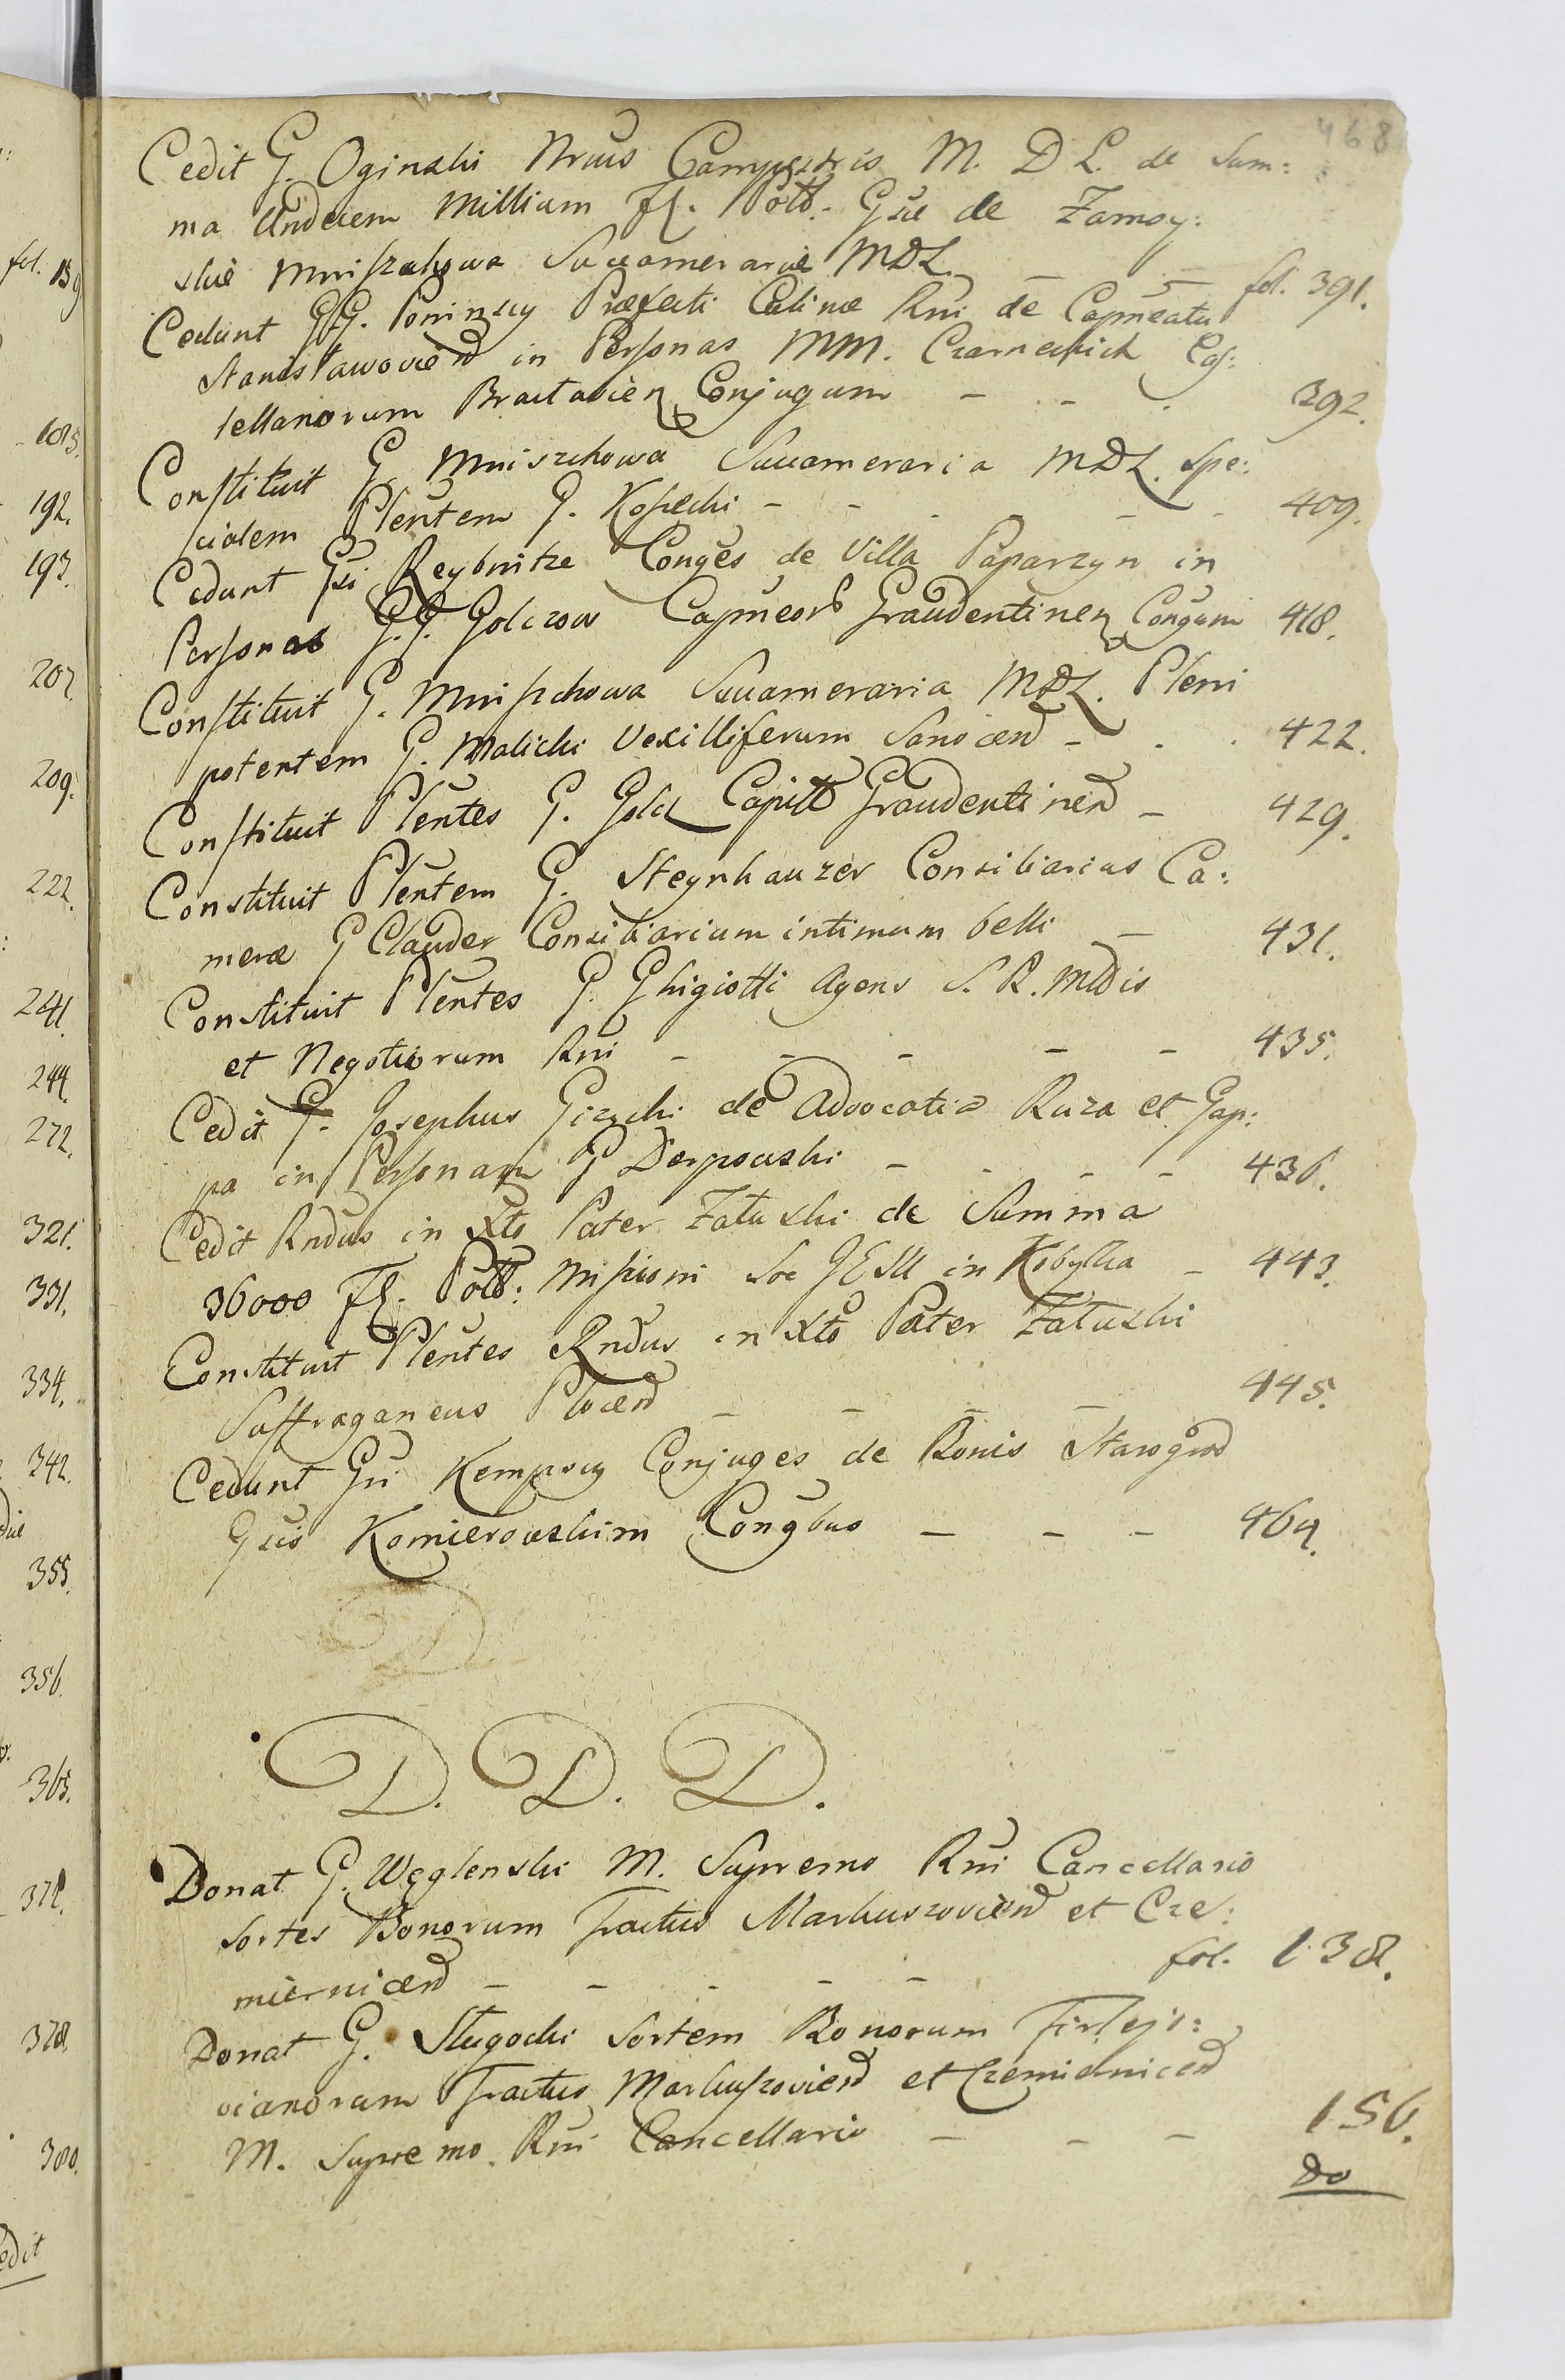 468
Cedit G. Oginski Nrius Campestris M. D L. de Sum:
ma Undecem Millium Fl. Poll. Gsie de Zamoy:
skie Mniszchowa Succamerariae MDL. — — fol. 391.
Cedunt GG. Poninscy Praefecti Culinae Rni de Capneatu
Stanislawovien in Personas MM. Czarneckich Cas:
tellanorum Braclavien Conjugum — - . 392.
Constituit G. Mniszchowa Succameraria MDL. Spe:
cialem Plentem G. Kopecki - - - - - 409.
Cedunt Gsi Reybnitze Conges de Villa Paparzyn in
Personas G.G. Golczow Capneor Graudentinen Congum 418.
Constituit G. Mniszchowa Succameraria MDL. Pleni
potentem G. Malicki Vexilliferum Sanocen - . . 422.
Constituit Plentes G. Golcz Capitt Graudentinen — 429.
Constituit Plentem G. Steynhauzer Consiliarius Ca:
merae G Clauder Consiliarium intimum belli — 431.
Constituit Plentes G. Ghigiotti Agens S. R. Mttis
et Negotiorum Rni - - - - - 435.
Cedit G. Josephus Gizycki de Advocatia Ruza et Gap:
pa in Personam G Derpowski - - - - 436.
Cedit Rndus in Xto Pater Zaluski de Summa
36000 Fl. Poll: Missioni Soc JESU in Kobylka - 443.
Constituit Plentes Rndus in Xto Pater Zaluski
Suffraganeus Plocen - - - - 445.
Cedunt Gsi Kempscy Conjuges de Bonis Starogrod
Gsis Komierowskim Congbus — - - 464.
D
D. D. D.
Donat G. Węglenski M. Supremo Rni Cancellario
Sortes Bonorum Tractus Markuszovien et Cze:
miernicen - - - - - fol. 138.
Donat G. Slugocki Sortem Bonorum Firlejo:
vianorum Tractus Markuszovien et Czemiernicen
M. Supremo Rni Cancellario - - - 156.
Do
fol. 159
192.
193.
207.
209.
222.
241.
244.
272.
321.
331.
334.
342.
355.
356.
365.
378.
380.
edit